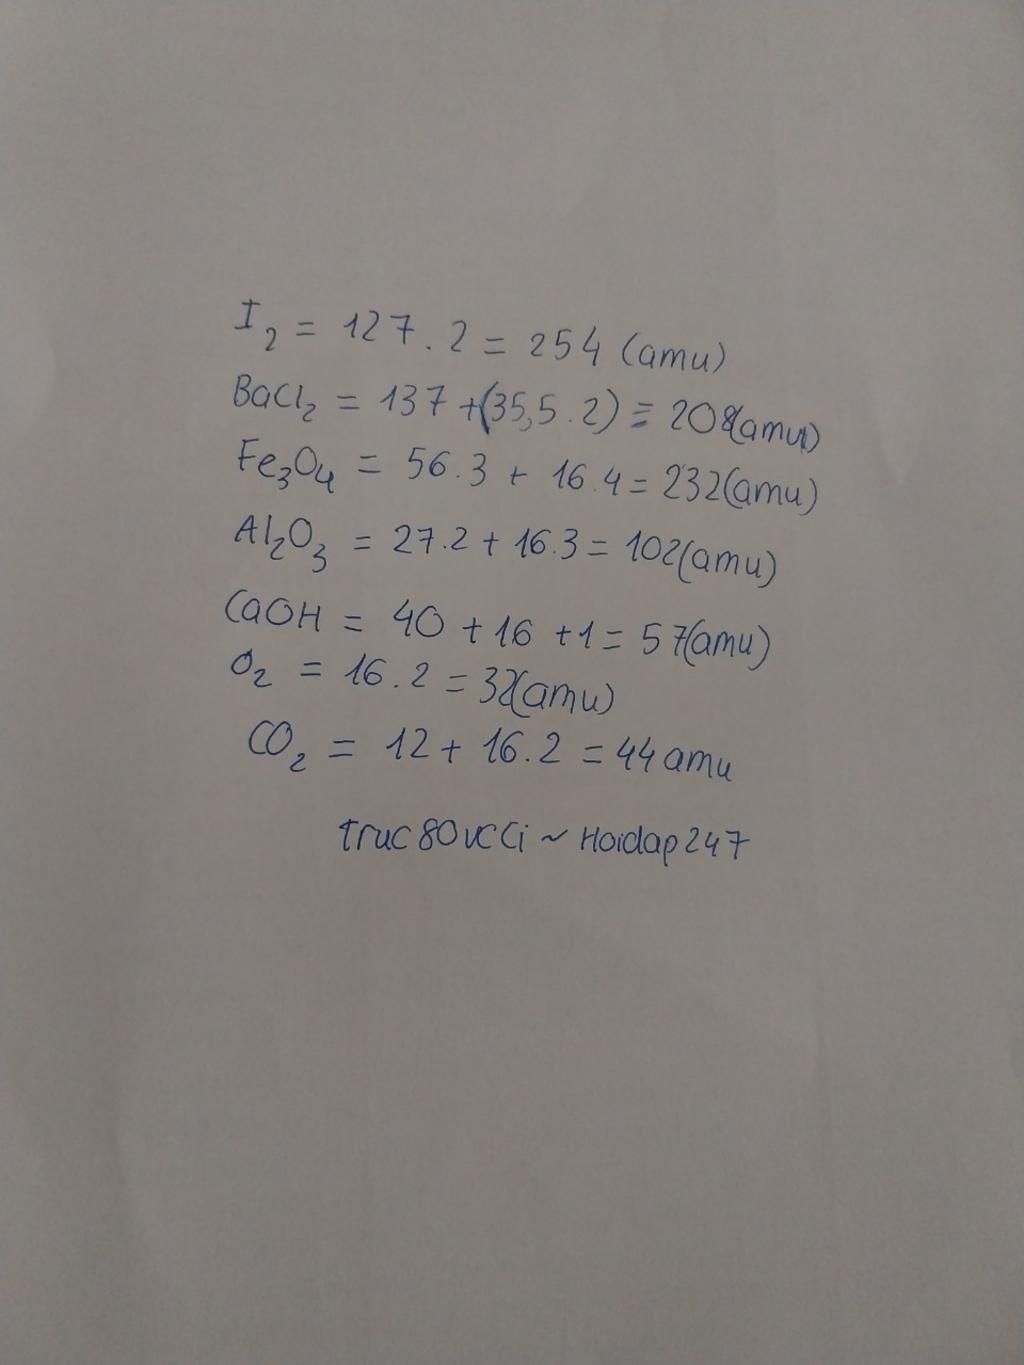 I₂ = 127.2 = 254 (amu)
BaCl₂ = 137 + (35,5.2) = 208(amu)
Fe₃O₄ = 56.3 + 16.4 = 232(amu)
Al₂O₃ = 27.2 + 16.3 = 102(amu)
CaOH = 40 + 16 + 1 = 57(amu)
O₂ = 16.2 = 32(amu)
CO₂ = 12 + 16.2 = 44 amu
~ Hoidap247